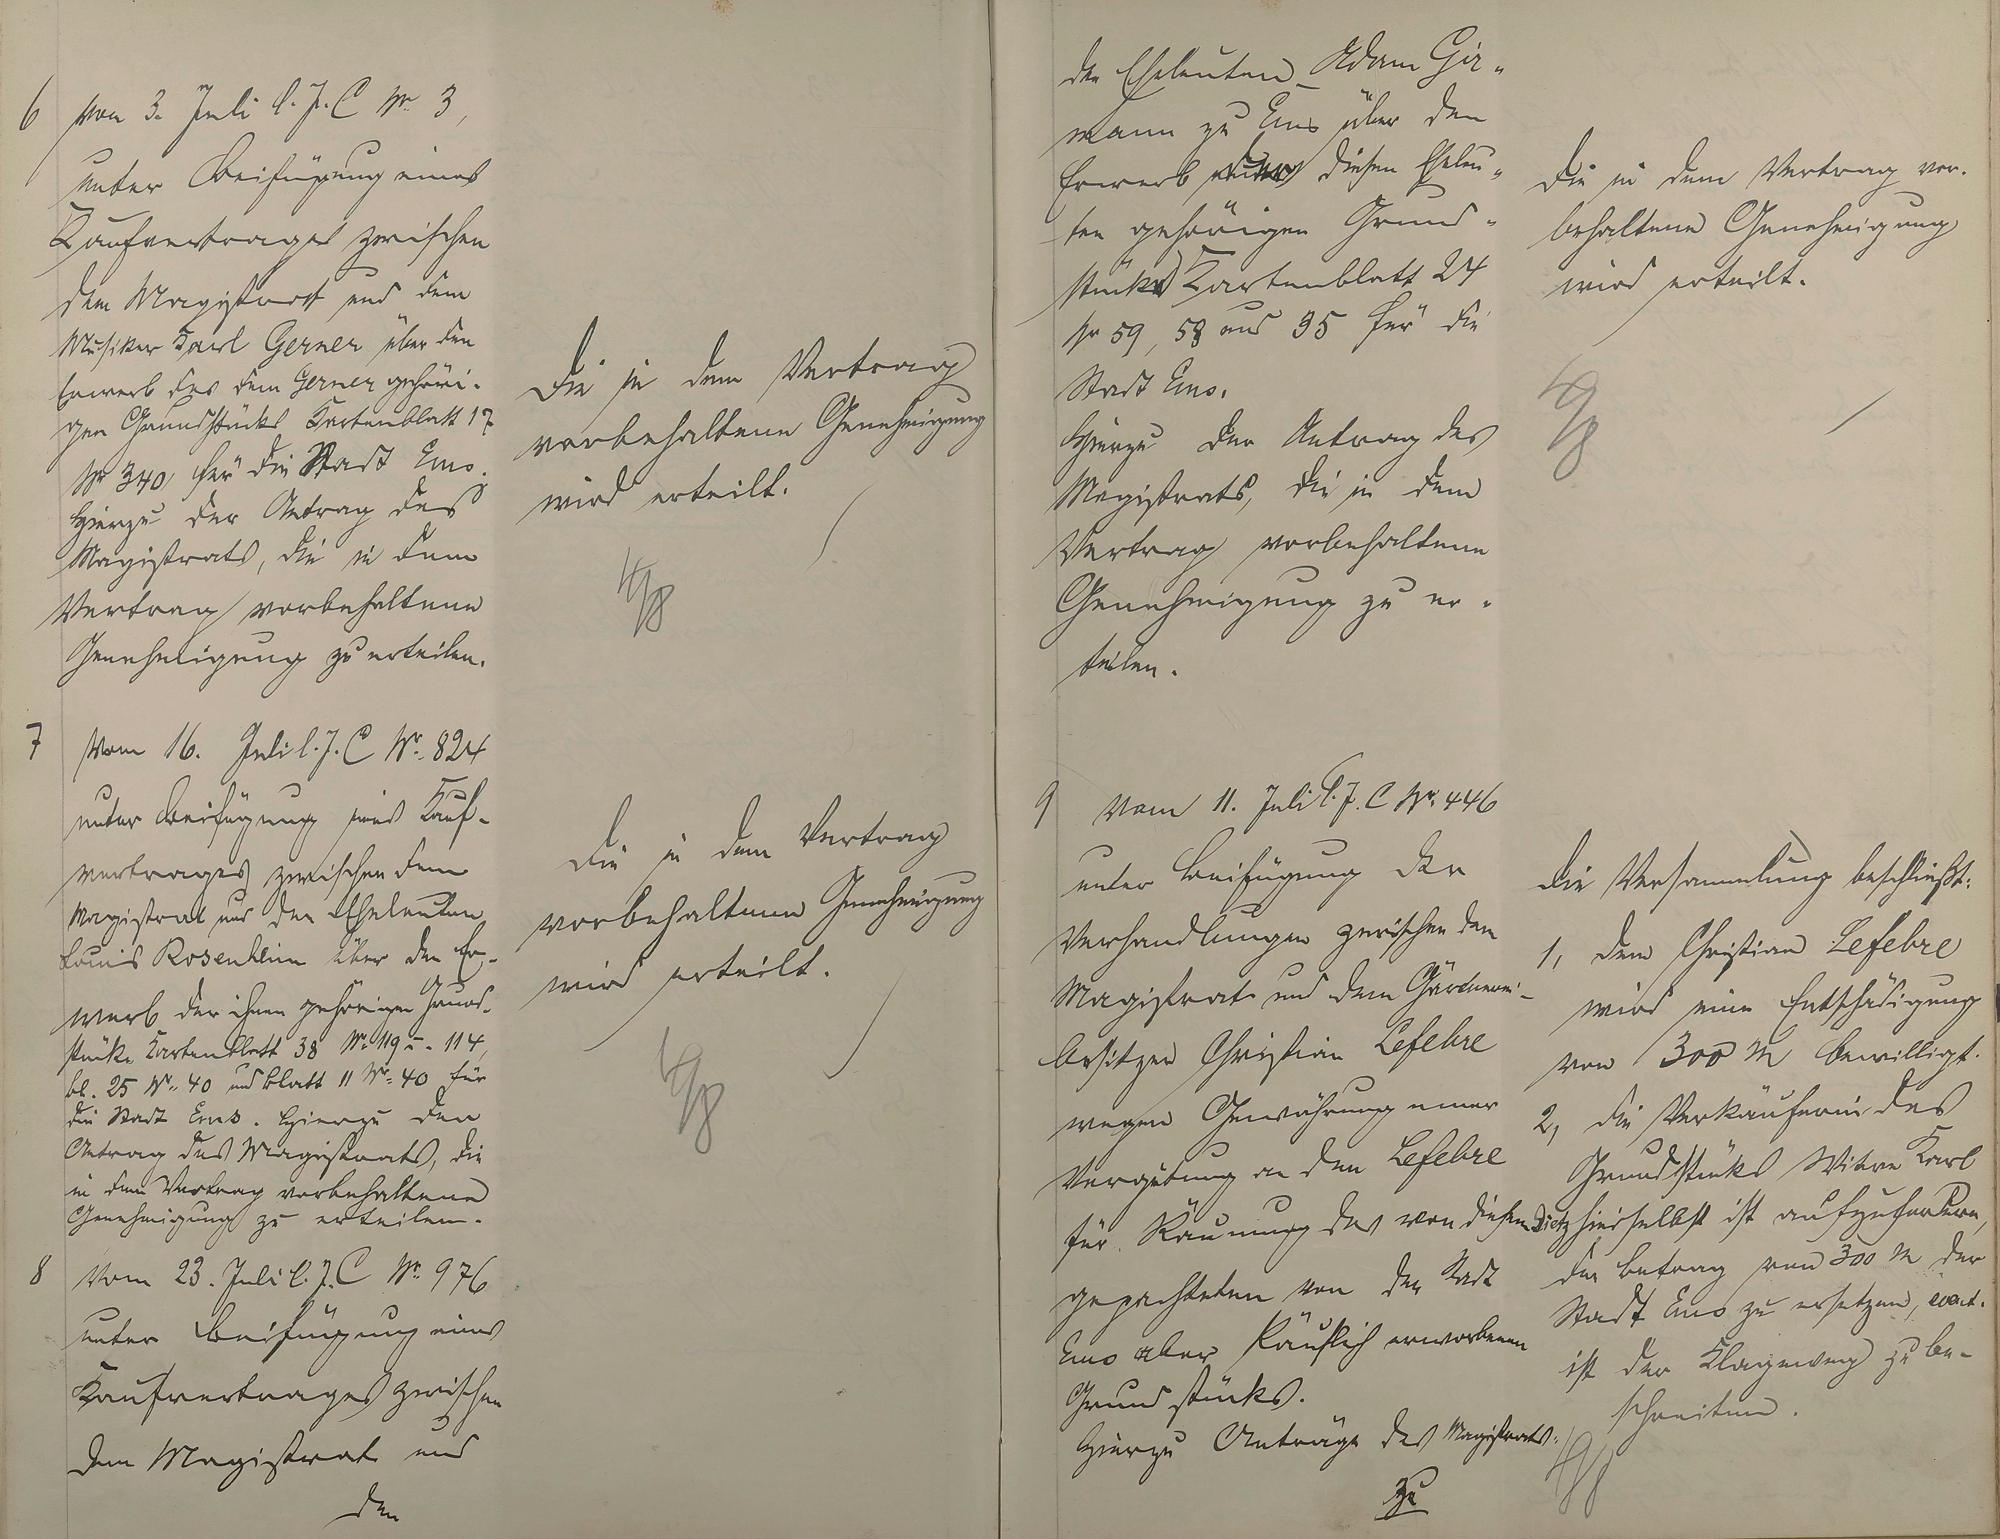 6 Vom 3. Juli l. J. C Nr. 3,
unter Beifügung eines
Kaufvertrages zwischen
dem Magistrat und dem
Musiker Karl Gerner über den
Erwerb des dem Gerner gehöri-
gen Grundstücks Kartenblatt 17
Nr 340 für die Stadt Ems.
Hierzu der Antrag des
Magistrats, die in dem
Vertrag vorbehaltene
Genehmigung zu erteilen.
Die in dem Vertrag
vorbehaltene Genehmigung
wird erteilt.
4/8
7 Vom 16. Juli l. J. C Nr. 824
unter Beifügung eines Kauf-
vertrages zwischen dem
Magistrat und den Eheleuten
Louis Rosenheim über den Er-
werb der ihnen gehörigen Grund-
stücke Kartenblatt 38 Nr. 119 u. 114,
bl. 25 Nr. 40 und Blatt 11 Nr. 40 für
die Stadt Ems. Hierzu den
Antrag des Magistrats, die
in dem Vertrag vorbehaltene
Genehmigung zu erteilen.
Die in dem Vertrag
vorbehaltene Genehmigung
wird erteilt.
4/8
8 Vom 23. Juli l. J. C Nr. 976
unter Beifügung eines
Kaufvertrages zwischen
dem Magistrat und
den
den Eheleuten Adam Gir-
mann zu Ems über den
Erwerb der diesen Eheleu-
ten gehörigen Grund-
stücke Kartenblatt 24
Nr 59, 58 und 35 für die
Stadt Ems.
Hierzu der Antrag des
Magistrats, die in dem
Vertrag vorbehaltene
Genehmigung zu er-
teilen.
Die in dem Vertrag vor-
behaltene Genehmigung
wird erteilt.
4/8
9 Vom 11. Juli l. J. C Nr. 446
unter Beifügung der
Verhandlungen zwischen dem
Magistrat und dem Gärtnerei-
besitzer Christian Lefebre
wegen Gewährung einer
Vergütung an den Lefebre
für Räumung des von diesem
gepachteten von der Stadt
Ems aber käuflich erworbenen
Grundstücks.
Hierzu Anträge des Magistrats.
zu
Die Versammlung beschließt:
1, dem Christian Lefebre
wird eine Entschädigung
von 300 M bewilligt.
2, die Verkäuferin des
Grundstücks Witwe Karl
Dietz hierselbst ist aufzufordern,
den Betrag von 300 M der
Stadt Ems zu ersetzen, event.
ist der Klageweg zu be-
schreiten.
4/8